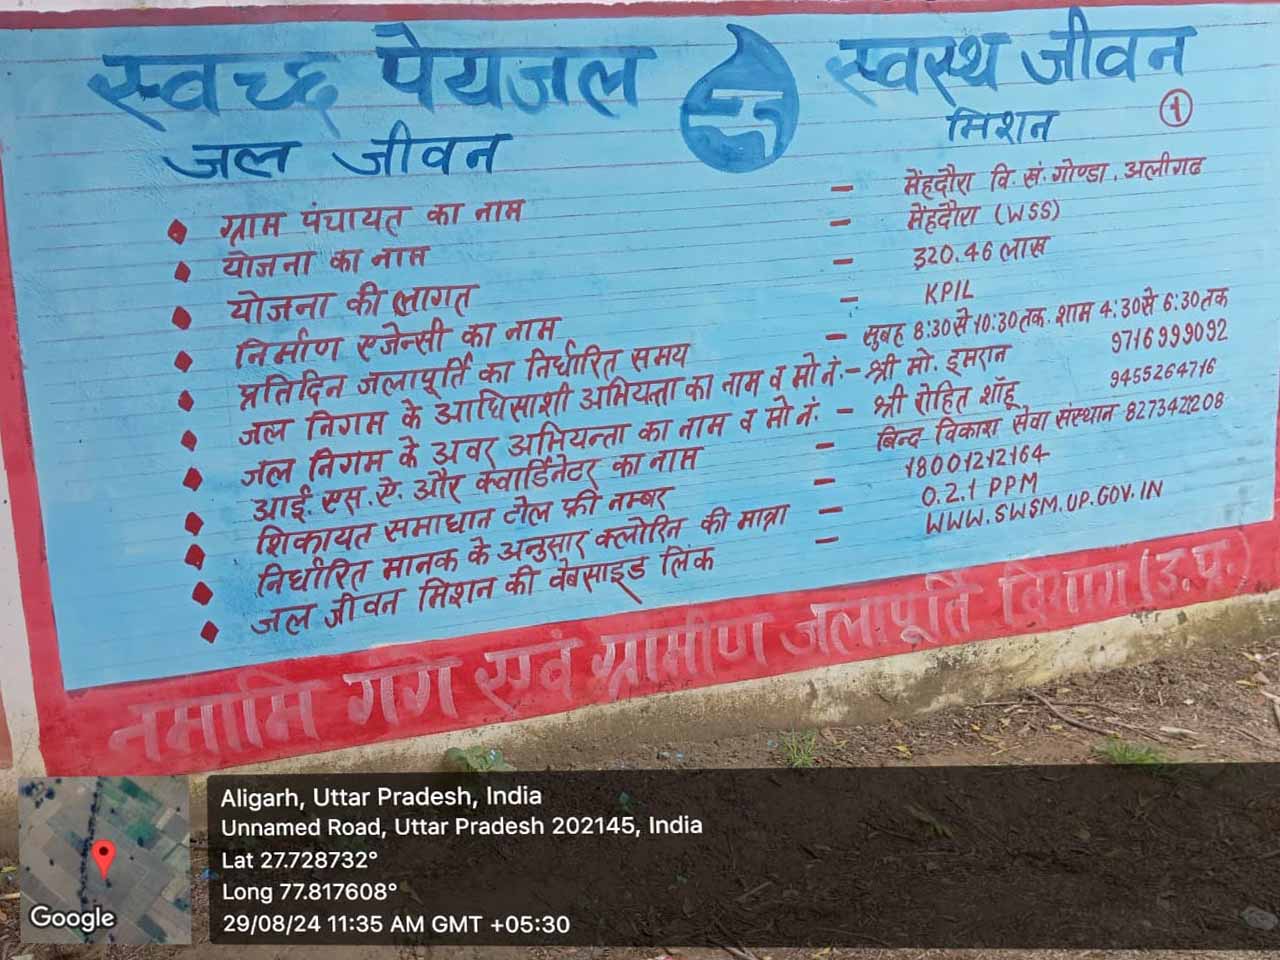 स्वच्छ पेयजल स्वस्थ जीवन
जल जीवन मिशन
1
ग्राम पंचायत का नाम – मेंहदौरा वि. खं. गोण्डा, अलीगढ
योजना का नाम – मेंहदौरा (WSS)
योजना की लागत – 320.46 लाख
निर्माण एजेन्सी का नाम – KPIL
प्रतिदिन जलापूर्ति का निर्धारित समय – सुबह 8:30 से 10:30 तक. शाम 4:30 से 6:30 तक
जल निगम के आधिसाशी अभियन्ता का नाम व मो नं.– श्री मो. इमरान 9716999092
जल निगम के अवर अभियन्ता का नाम व मो नं. – श्री रोहित शॉहू 9455264716
आई. एस. ऐ. और क्वार्डिनेटर का नाम – बिन्द विकाश सेवा संस्थान 8273421208
शिकायत समाधान टोल फ्री नम्बर – 18001212164
निर्धारित मानक के अनुसार क्लोरिन की मात्रा – 0.2.1 PPM
जल जीवन मिशन की वेबसाइड लिंक – WWW.SWSM.UP.GOV.IN
नमामि गंगे एवं ग्रामीण जलापूर्ति विभाग (उ.प्र.)
Google
Aligarh, Uttar Pradesh, India
Unnamed Road, Uttar Pradesh 202145, India
Lat 27.728732°
Long 77.817608°
29/08/24 11:35 AM GMT +05:30